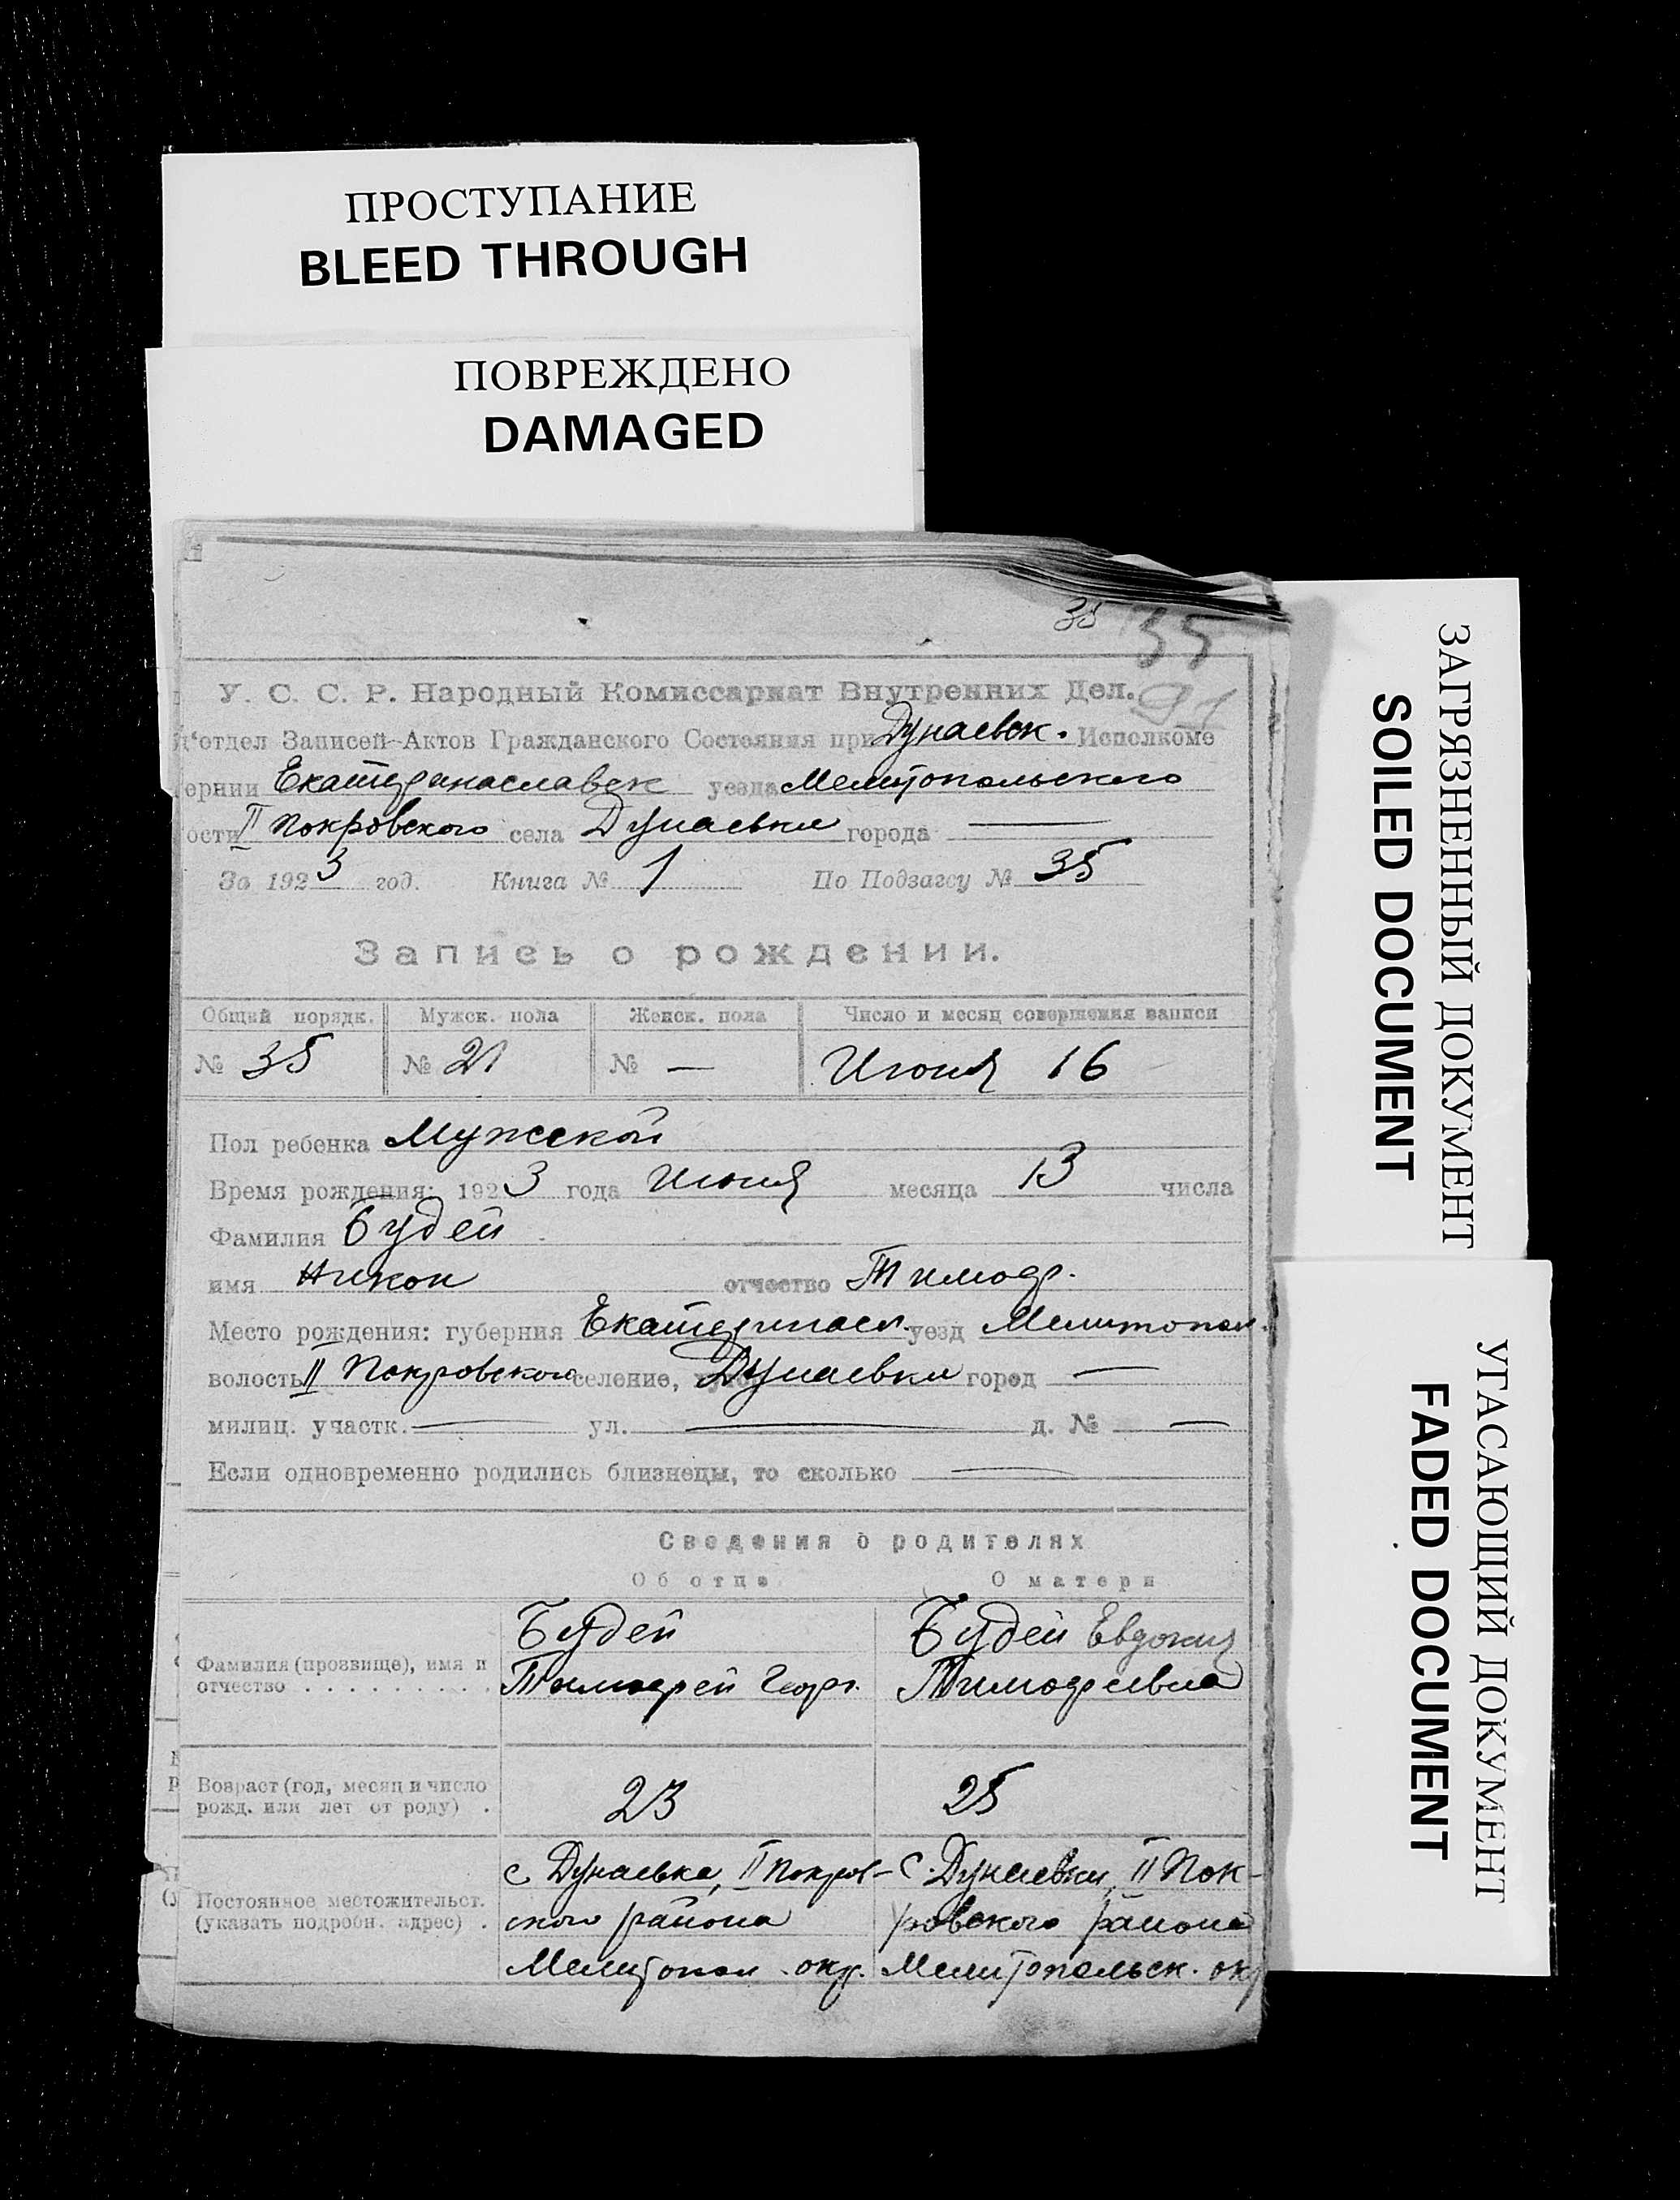 ПРОСТУПАНИЕ
BLEED THROUGH
ПОВРЕЖДЕНО
DAMAGED
ЗАГРЯЗНЕННЫЙ ДОКУМЕНТ
SOILED DOCUMENT
УГАСАЮЩИЙ ДОКУМЕНТ
FADED DOCUMENT
35 35
91
У. С. С. Р. Народный Комиссариат Внутренних Дел.
отдел Записей Актов Гражданского Состояния при Дунаевск. Исполкоме
ернии Екатеринаславск уезда Мелитопольского
ости II Покровского села Дунаевки города —
За 1923 год. Книга № 1 По Подзагсу № 35
Запись о рождении.
Общий порядк. Мужск. пола Женск. пола Число и месяц совершения записи
№ 35 № 21 № — Июня 16
Пол ребенка Мужской
Время рождения: 1923 года Июня месяца 13 числа
Фамилия Будей
имя Никон отчество Тимоф.
Место рождения: губерния Екатеринасл. уезд Мелитопол.
волость II Покровского селение, Дунаевки город —
милиц. участк. — ул. — д. № —
Если одновременно родились близнецы, то сколько —
Сведения о родителях
Об отце О матери
Фамилия (прозвище), имя и отчество . . . . . . . . .
Будей
Тимофей Георг.
Будей Евдокия
Тимофеевна
Возраст (год, месяц и число рожд. или лет от роду) .
23 25
Постоянное местожительст. (указать подробн. адрес) .
с Дунаевка, II Покров-
ского района
Мелитопол. окр.
с. Дунаевки, II Пок-
ровского района
Мелитопольск. окр